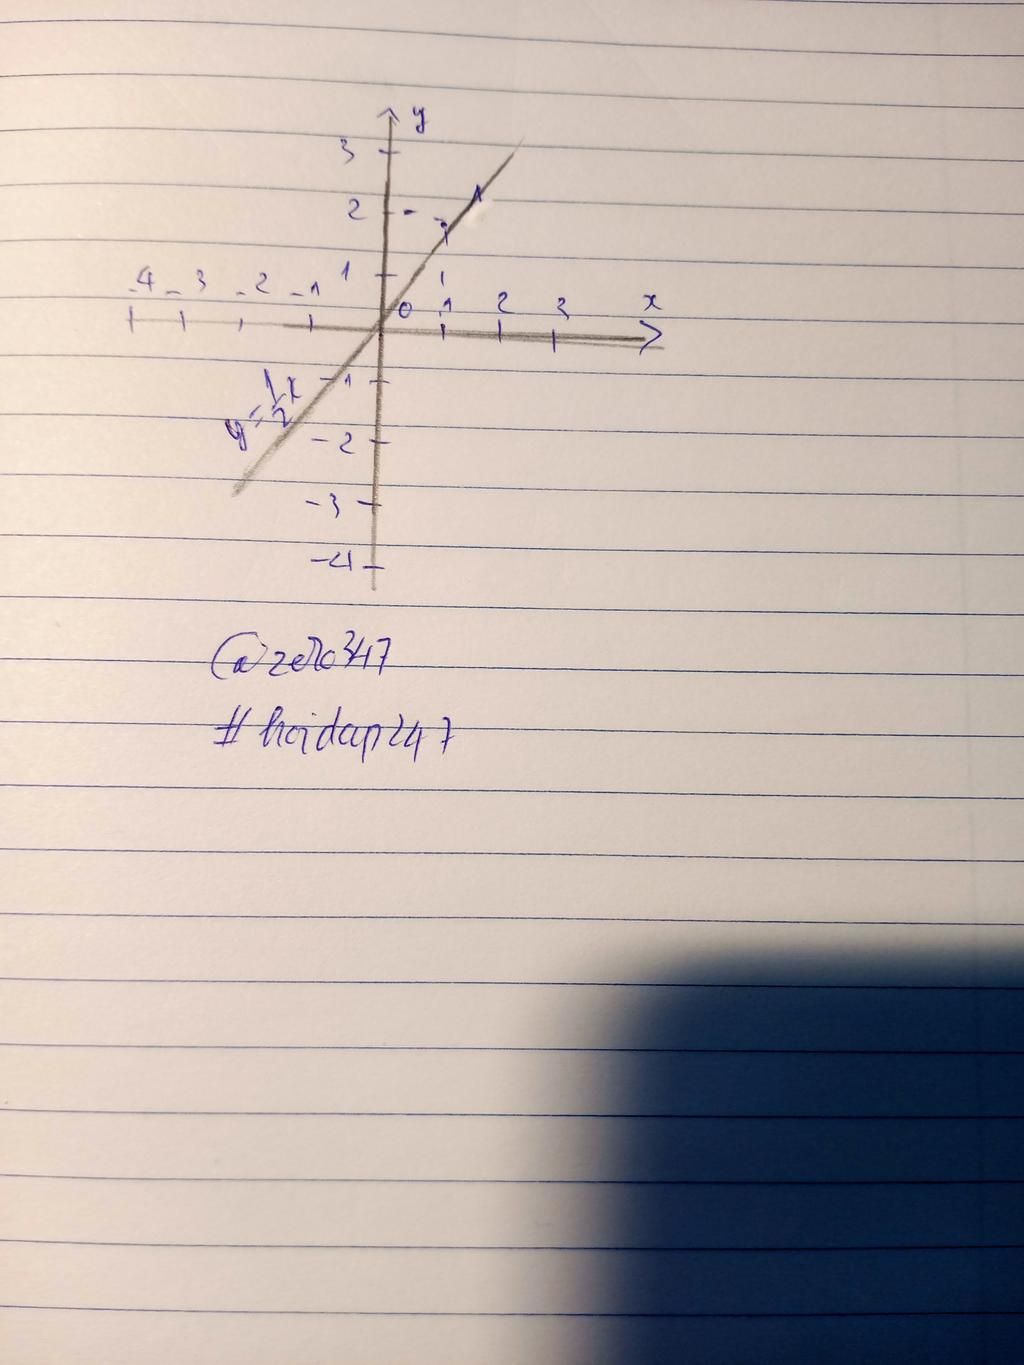 y
3
2
A
1
-4 -3 -2 -1 0 1 2 3 x
-1
y = 1/2 x
-2
-3
-4
@zero347
#hoidap247